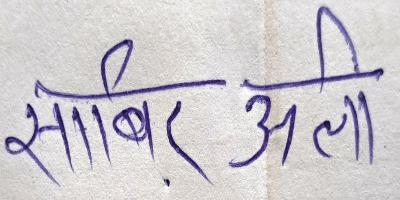 साबिर अली